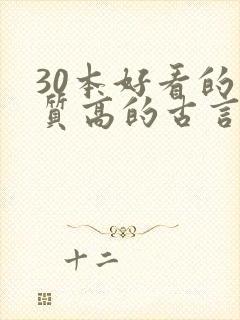 30本好看的
质高的古言
十二